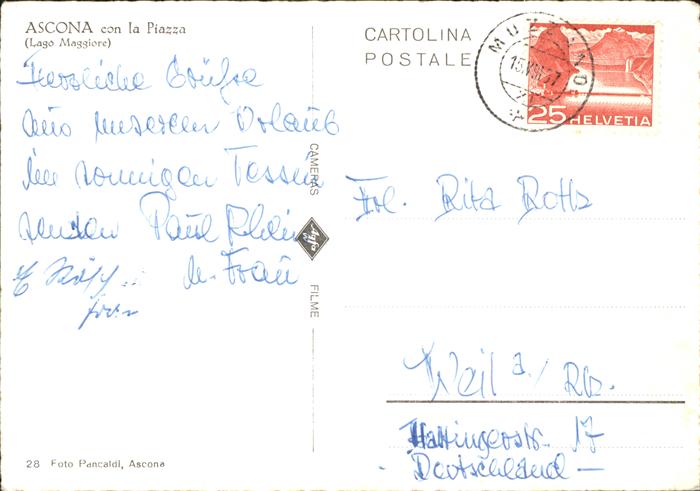 ASCONA con la Piazza
(Lago Maggiore)
Herzliche Grüße
aus unserem Urlaub
im sonnigen Tessin
senden Paul Rhein
u. Frau
Frau
28 Foto Pancaldi, Ascona
CAMERAS
Agfa
FILME
CARTOLINA
POSTALE
25 HELVETIA
Frl. Rita Roth
Weil a/Rh.
Haltingerstr. 17
Deutschland